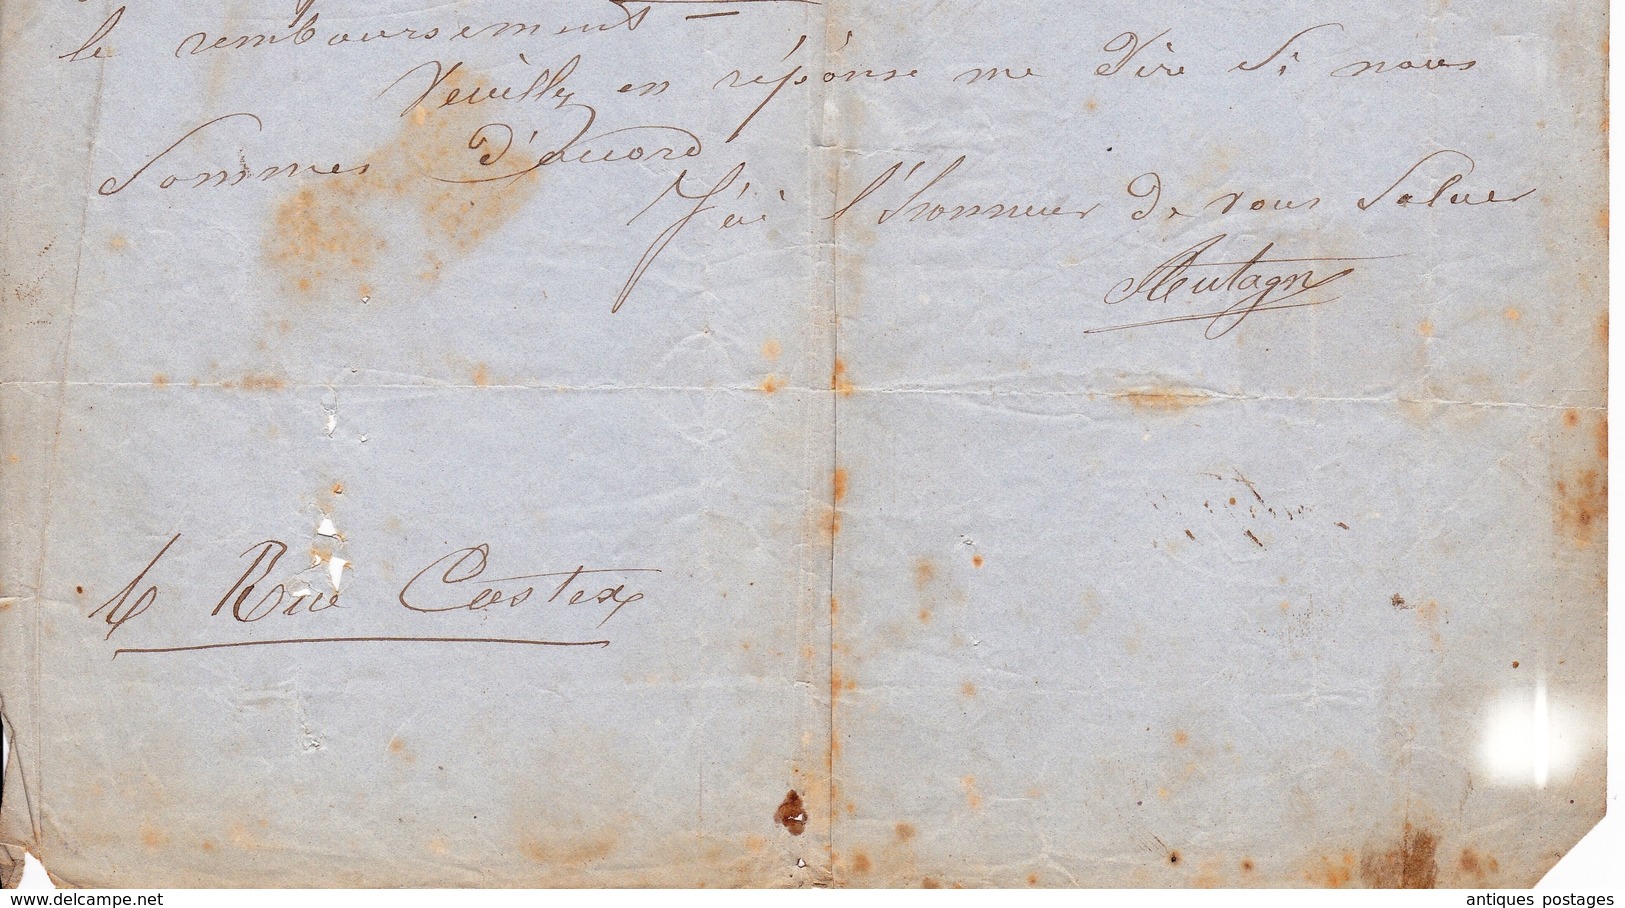 le remboursement —
Veuillez en réponse me dire si nous
sommes d'accord
J'ai l'honneur de vous saluer
6 Rue Castex
www.delcampe.net
antiques postages